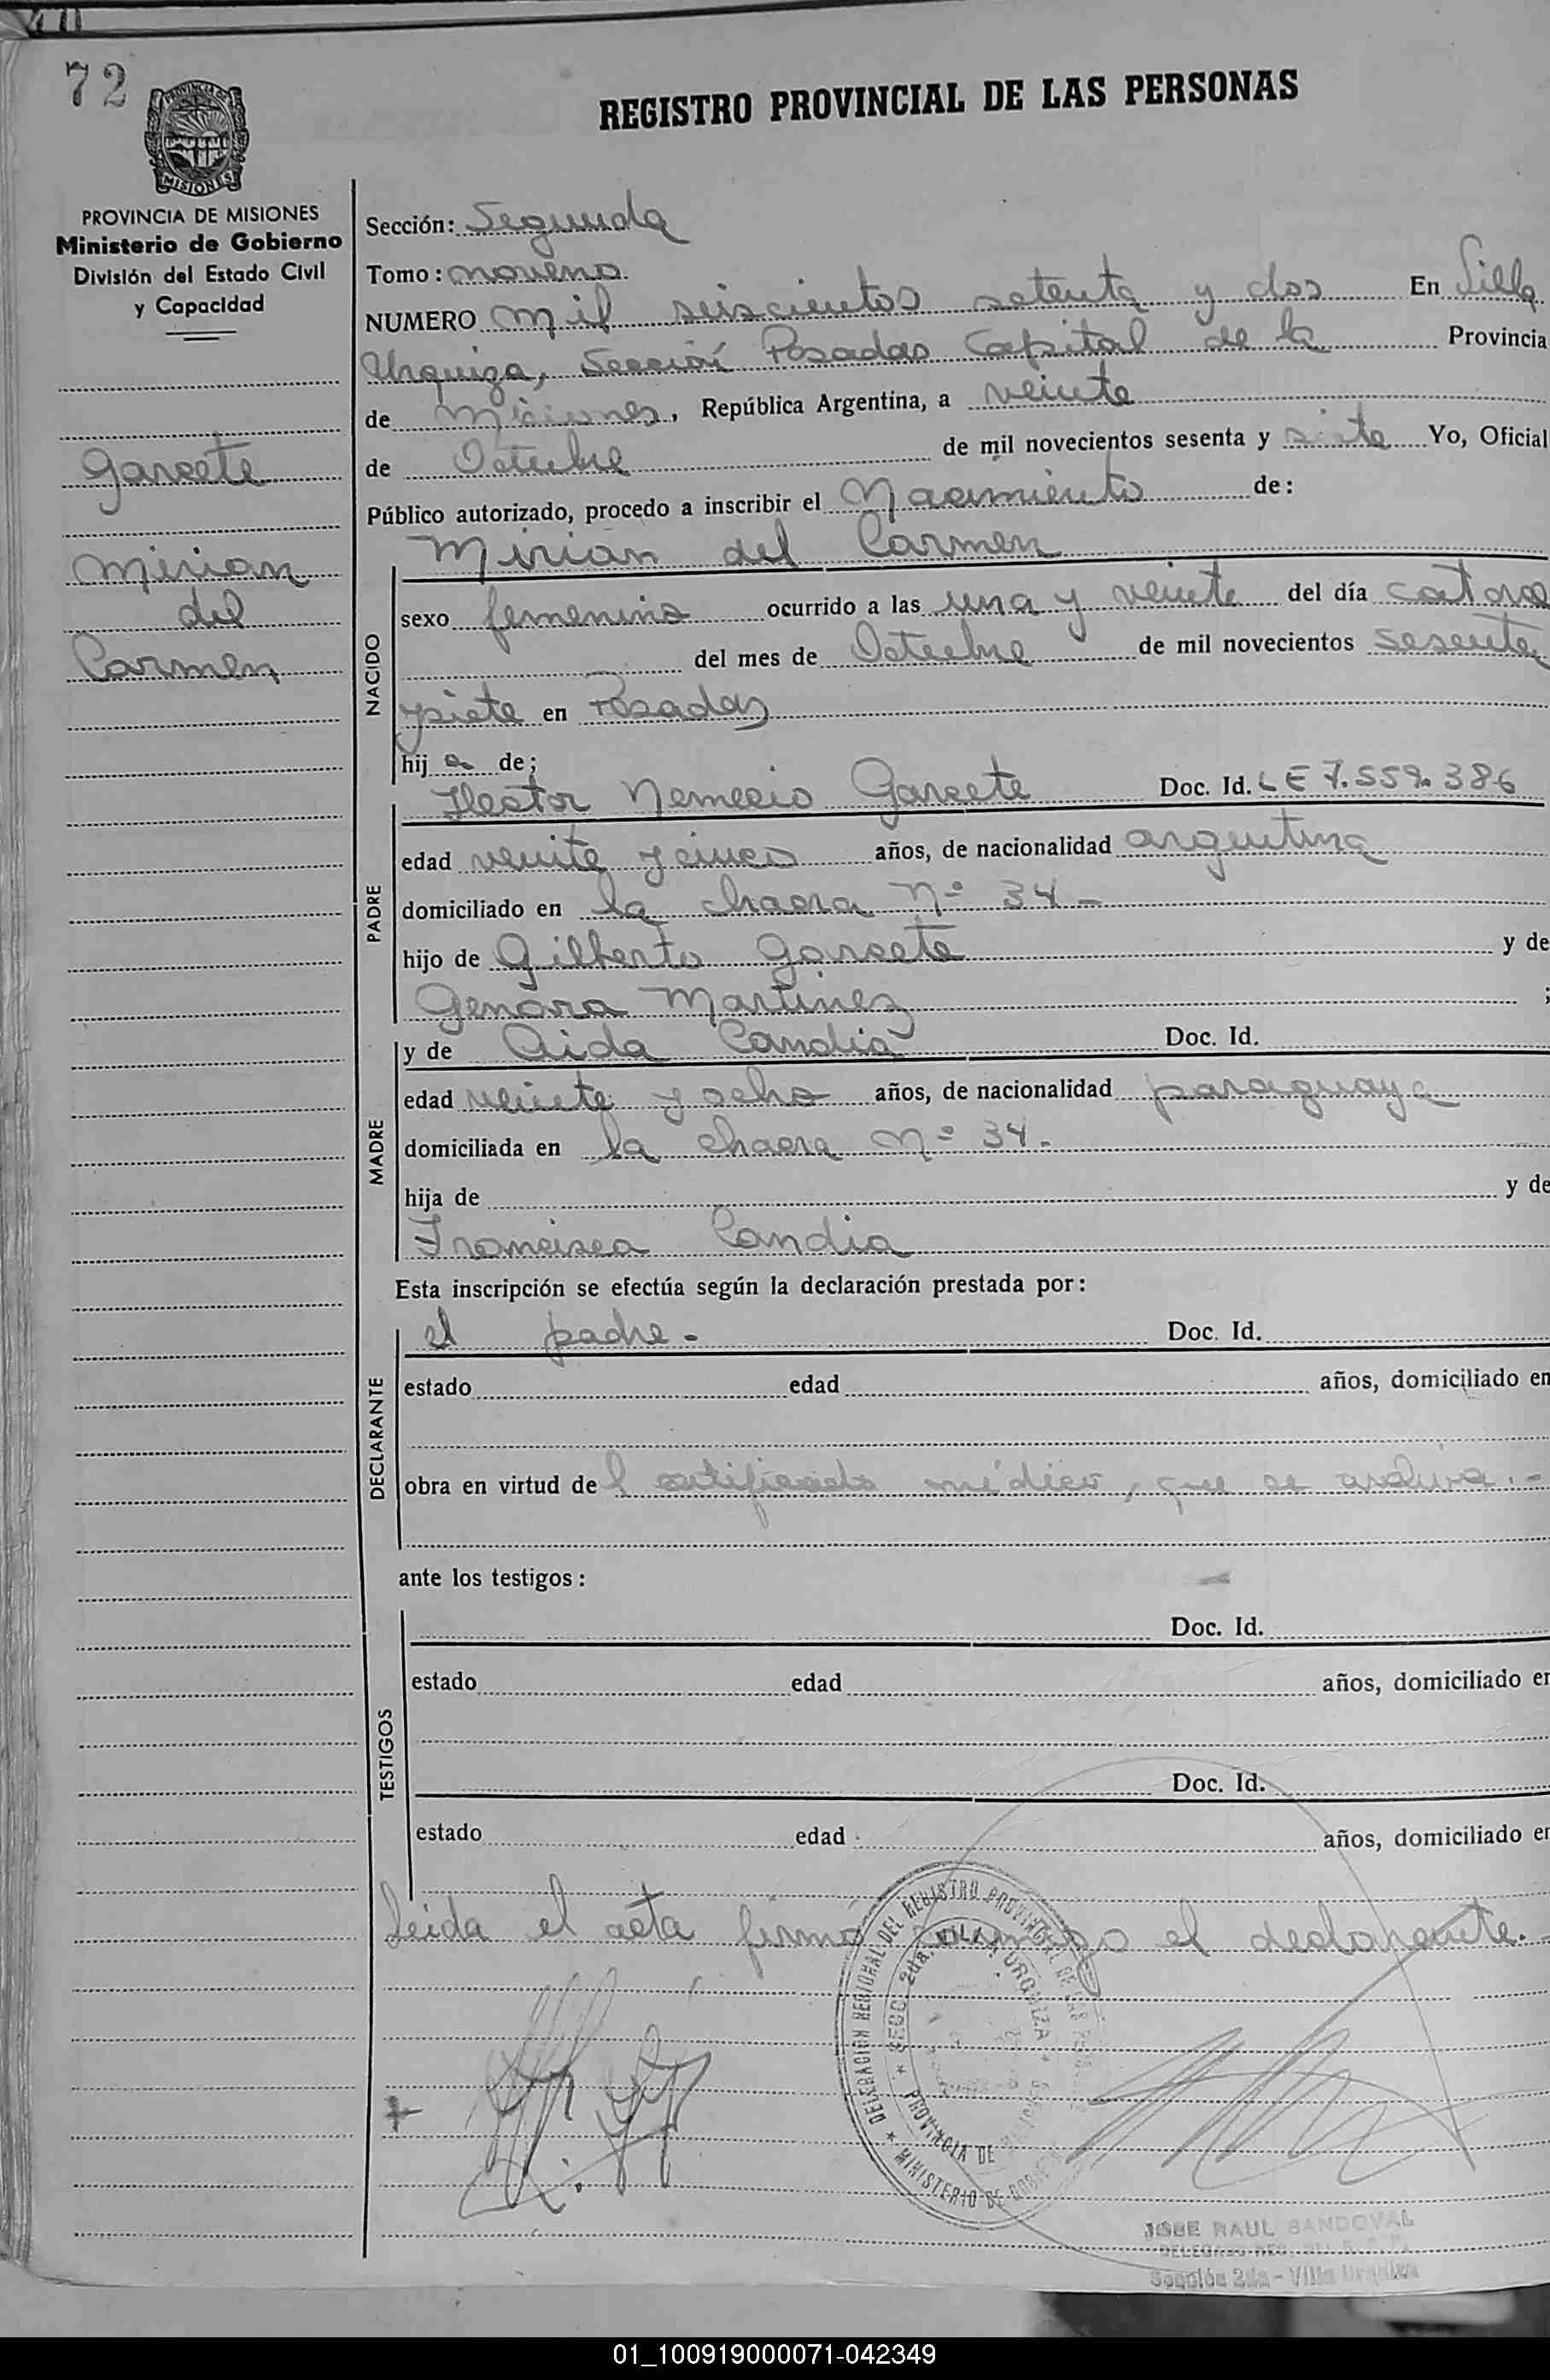 72
REGISTRO PROVINCIAL DE LAS PERSONAS
PROVINCIA DE MISIONES
MISIONES
PROVINCIA DE MISIONES
Ministerio de Gobierno
División del Estado Civil
y Capacidad
Garcete
Mirian
del
Carmen
Sección: Segunda
Tomo: noveno
NUMERO mil seiscientos setenta y dos En Villa
Urquiza, Sección Posadas Capital de la Provincia
de Misiones, República Argentina, a veinte
de Octubre de mil novecientos sesenta y siete Yo, Oficial
Público autorizado, procedo a inscribir el Nacimiento de:
Mirian del Carmen
NACIDO
sexo femenino ocurrido a las una y veinte del día catorce
del mes de Octubre de mil novecientos sesenta
y siete en Posadas
hij a de;
Hector Nemecio Garcete Doc. Id. LE 7.559.386
PADRE
edad veinte y cinco años, de nacionalidad argentina
domiciliado en la chacra Nº 34 -
hijo de Gilberto Garcete y de
Genara Martinez ;
y de Aida Candia Doc. Id.
MADRE
edad veinte y ocho años, de nacionalidad paraguaya
domiciliada en la chacra Nº 34.-
hija de y de
Francisca Candia
Esta inscripción se efectúa según la declaración prestada por:
el padre.- Doc. Id.
DECLARANTE
estado edad años, domiciliado en
obra en virtud del certificado médico, que se archiva.-
ante los testigos:
Doc. Id.
TESTIGOS
estado edad años, domiciliado en
Doc. Id.
estado edad años, domiciliado en
Leida el acta firmó conmigo el declarante.-
DELEGACION REGIONAL DEL REGISTRO PROVINCIAL DE LAS
SECC. 2da. VILLA URQUIZA
PROVINCIA DE
MINISTERIO DE
JOSE RAUL SANDOVAL
Sección 2da - Villa Urquiza
01_100919000071-042349